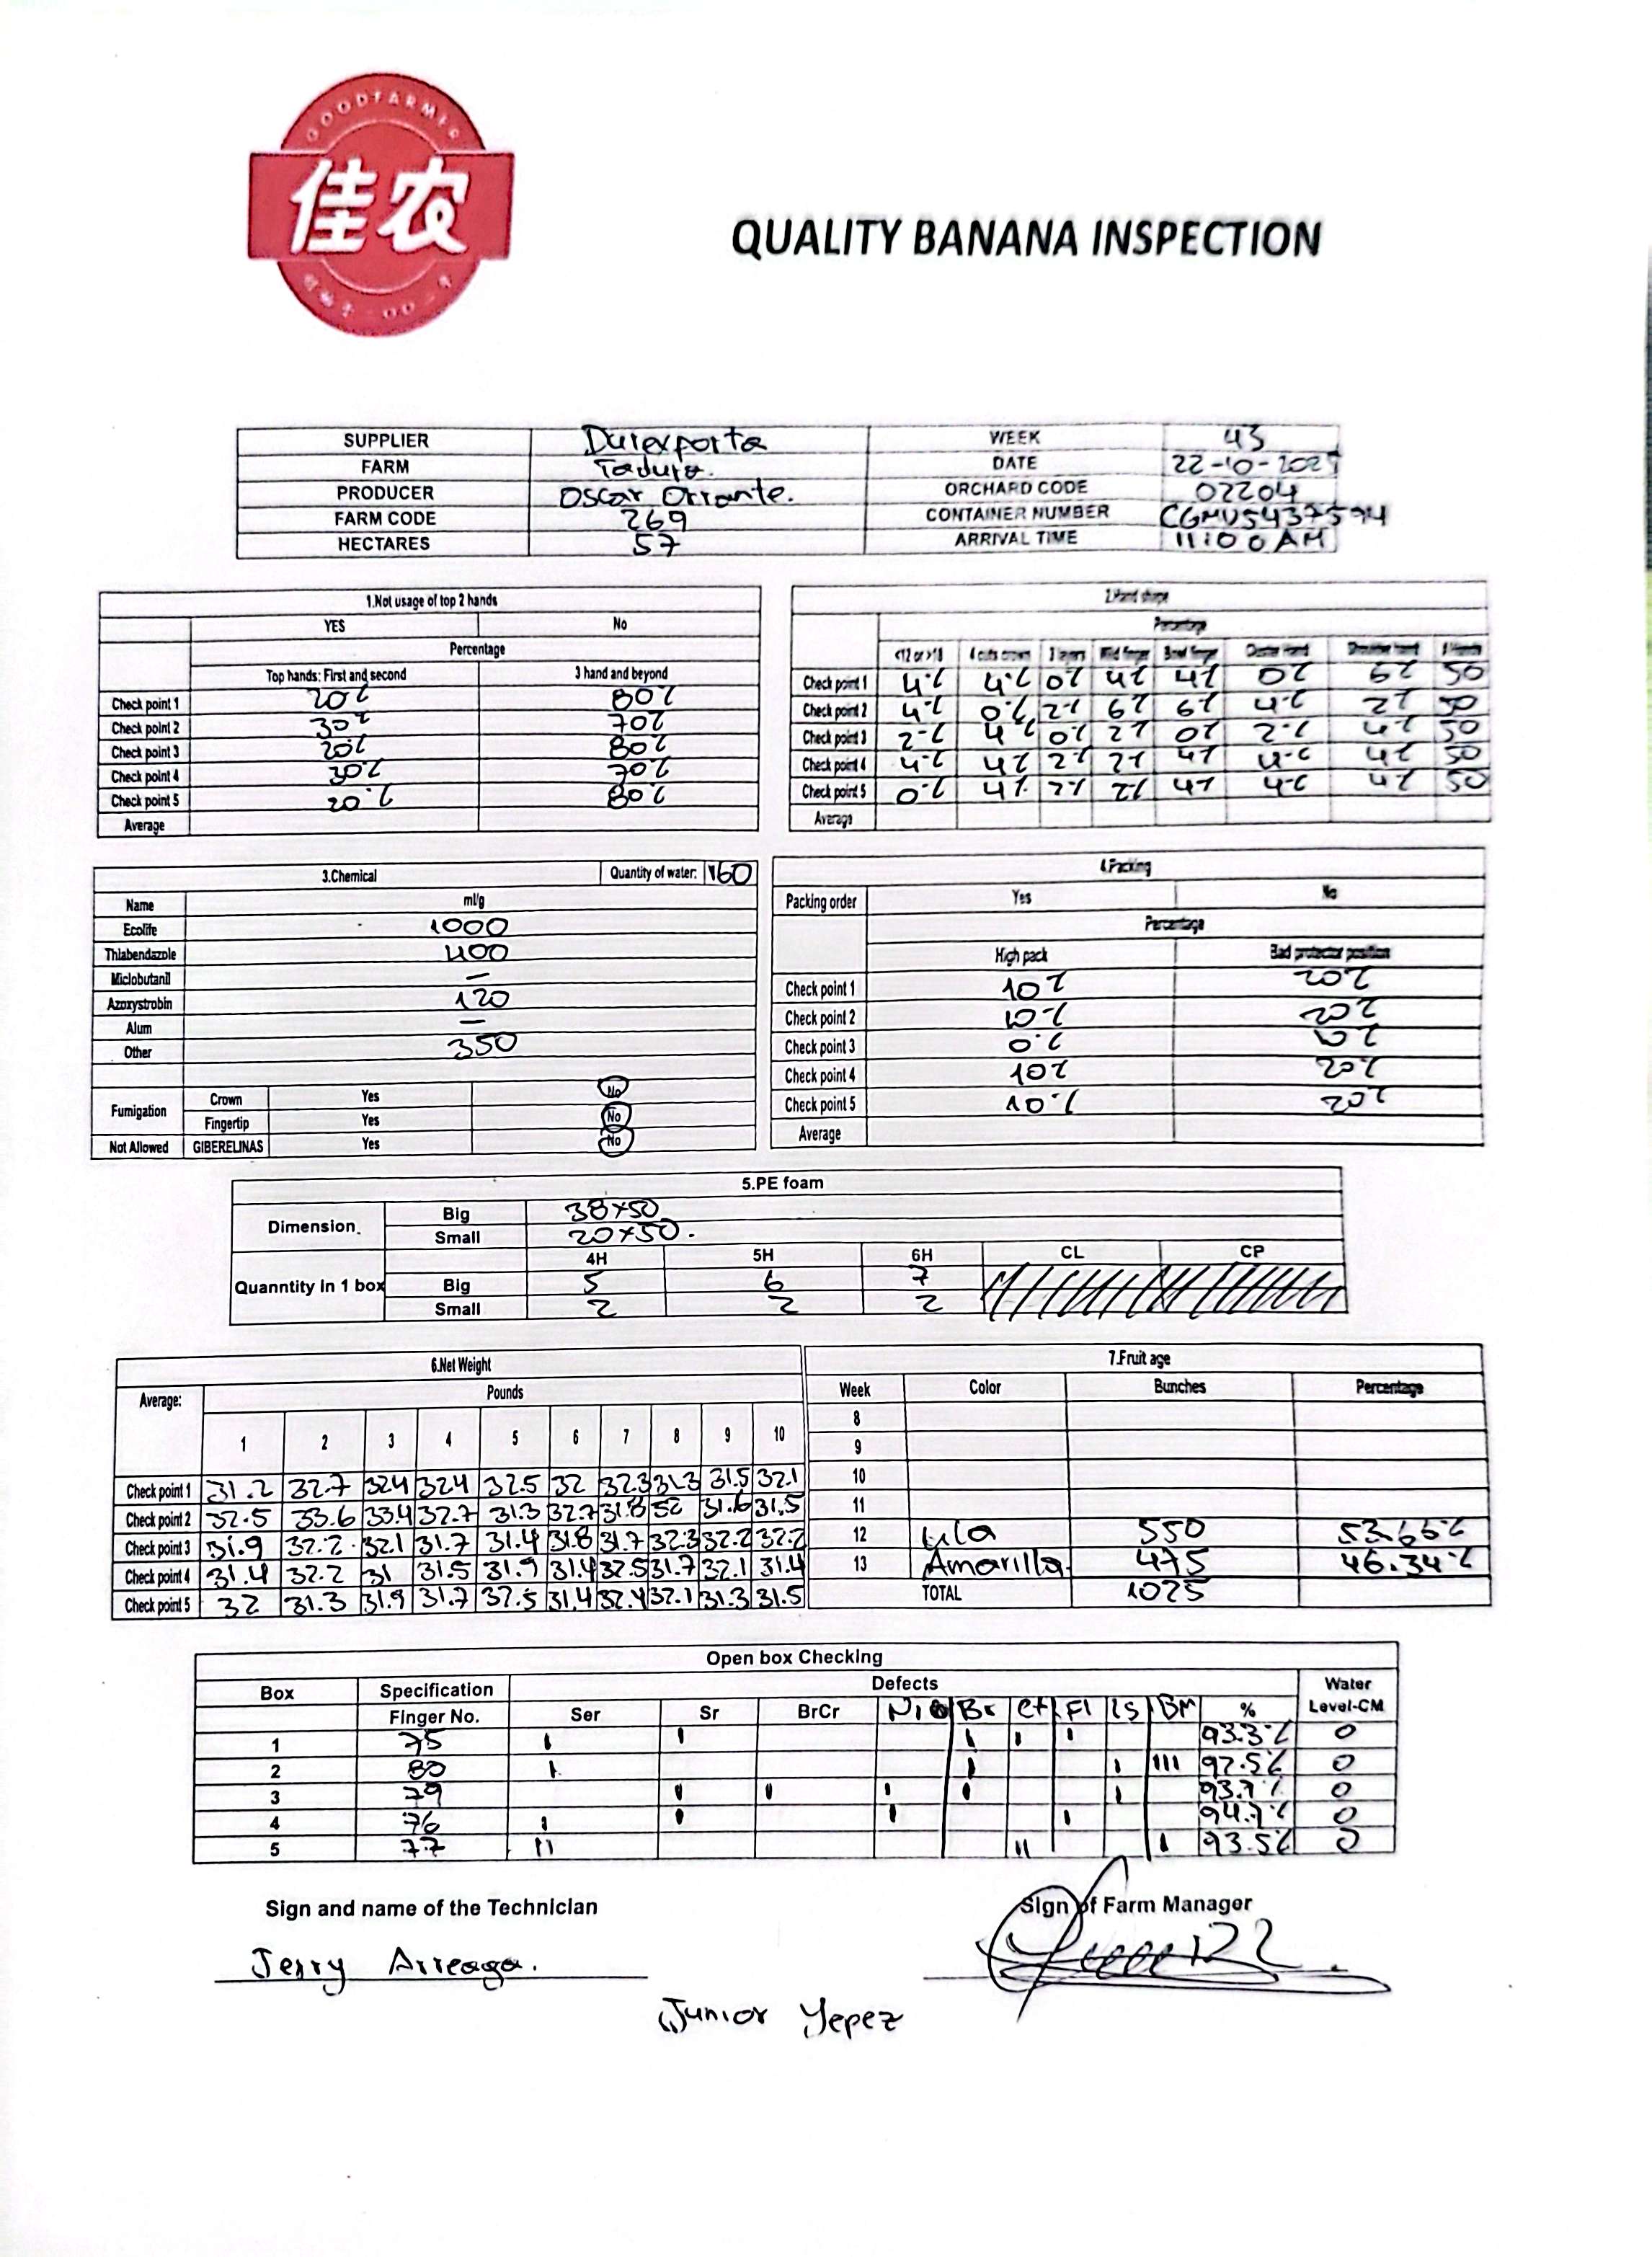 GOODFARMER
佳农
QUALITY BANANA INSPECTION
SUPPLIER Durexporta WEEK 43
FARM DATE 22-10-202
PRODUCER Oscar Orrante. ORCHARD CODE 02204
FARM CODE 269 CONTAINER NUMBER CGMU5437594
HECTARES 57 ARRIVAL TIME 11:00 AM
1.Not usage of top 2 hands
YES No
Percentage
Top hands: First and second 3 hand and beyond
Check point 1 20% 80%
Check point 2 30% 70%
Check point 3 20% 80%
Check point 4 30% 70%
Check point 5 20% 80%
Average
2.Hand shape
Percentage
<12 or >18 4 cuts crown 3 layers Mid finger Cluster Hand
Check point 1 4% 4% 0% 4% 4% 0% 6% 50
Check point 2 4% 0% 2% 6% 6% 4% 2% 50
Check point 3 2% 4% 0% 2% 0% 2% 4% 50
Check point 4 4% 4% 2% 2% 4% 4% 4% 50
Check point 5 0% 4% 2% 2% 4% 4% 4% 50
Average
3.Chemical Quantity of water: 160
Name ml/g
Ecolife 1000
Thiabendazole 400
Miclobutanil —
Azoxystrobin 120
Alum —
Other 350
Fumigation Crown Yes No
Fingertip Yes No
Not Allowed GIBERELINAS Yes No
4.Packing
Packing order Yes No
Percentage
High pack Bad protector position
Check point 1 10% 20%
Check point 2 10% 20%
Check point 3 0% 10%
Check point 4 10% 20%
Check point 5 10% 20%
Average
5.PE foam
Dimension. Big 38x50
Small 20x50.
4H 5H 6H CL CP
Quanntity in 1 box Big 5 6 7
Small 2 2 2
6.Net Weight
Average: Pounds
1 2 3 4 5 6 7 8 9 10
Check point 1 31.2 32.7 32.4 32.4 32.5 32 32.3 31.3 31.5 32.1
Check point 2 32.5 33.6 33.4 32.7 31.3 32.7 31.8 32 31.6 31.5
Check point 3 31.9 32.2 32.1 31.7 31.4 31.8 31.7 32.3 32.2 32.2
Check point 4 31.4 32.2 31 31.5 31.9 31.4 32.5 31.7 32.1 31.4
Check point 5 32 31.3 31.9 31.7 32.5 31.4 32.4 32.1 31.3 31.5
7.Fruit age
Week Color Bunches Percentage
8
9
10
11
12 Lila 550 53.66%
13 Amarilla. 475 46.34%
TOTAL 1025
Open box Checking
Box Specification Defects Water
Finger No. Ser Sr BrCr Br Ct Fl LS BM % Level-CM
1 75 I I I I I 93.3% 0
2 80 I I I III 92.5% 0
3 79 I I I I I 93.7% 0
4 76 I I I I 94.7% 0
5 77 II II I 93.5% 0
Sign and name of the Technician Sign of Farm Manager
Jerry Arreaga.
Junior Yepez